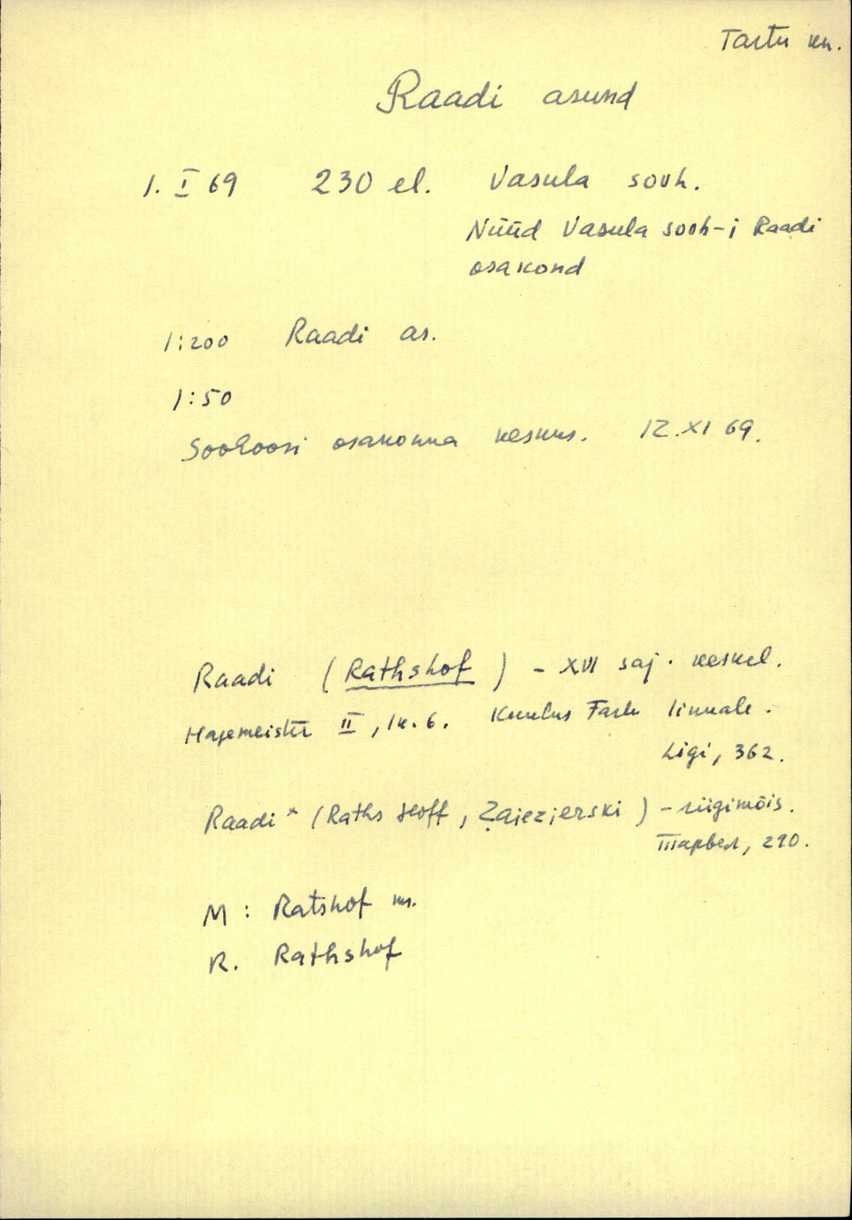 Tartu kn.
Raadi asund
1. I 69 230 el. Vasula sovh.
Nüüd Vasula sovh-i Raadi
osakond
1:200 Raadi as.
1:50
Sovhoosi osakonna keskus. 12.XI 69.
Raadi (Rathshof) - XVI saj. keskel.
Hagemeister II, lk. 6. Kuulus Tartu linnale.
Ligi, 362.
Raadi* (Raths Hoff, Zajezierski) - riigimõis.
Тарвел, 290.
M: Ratshof m.
R. Rathshof